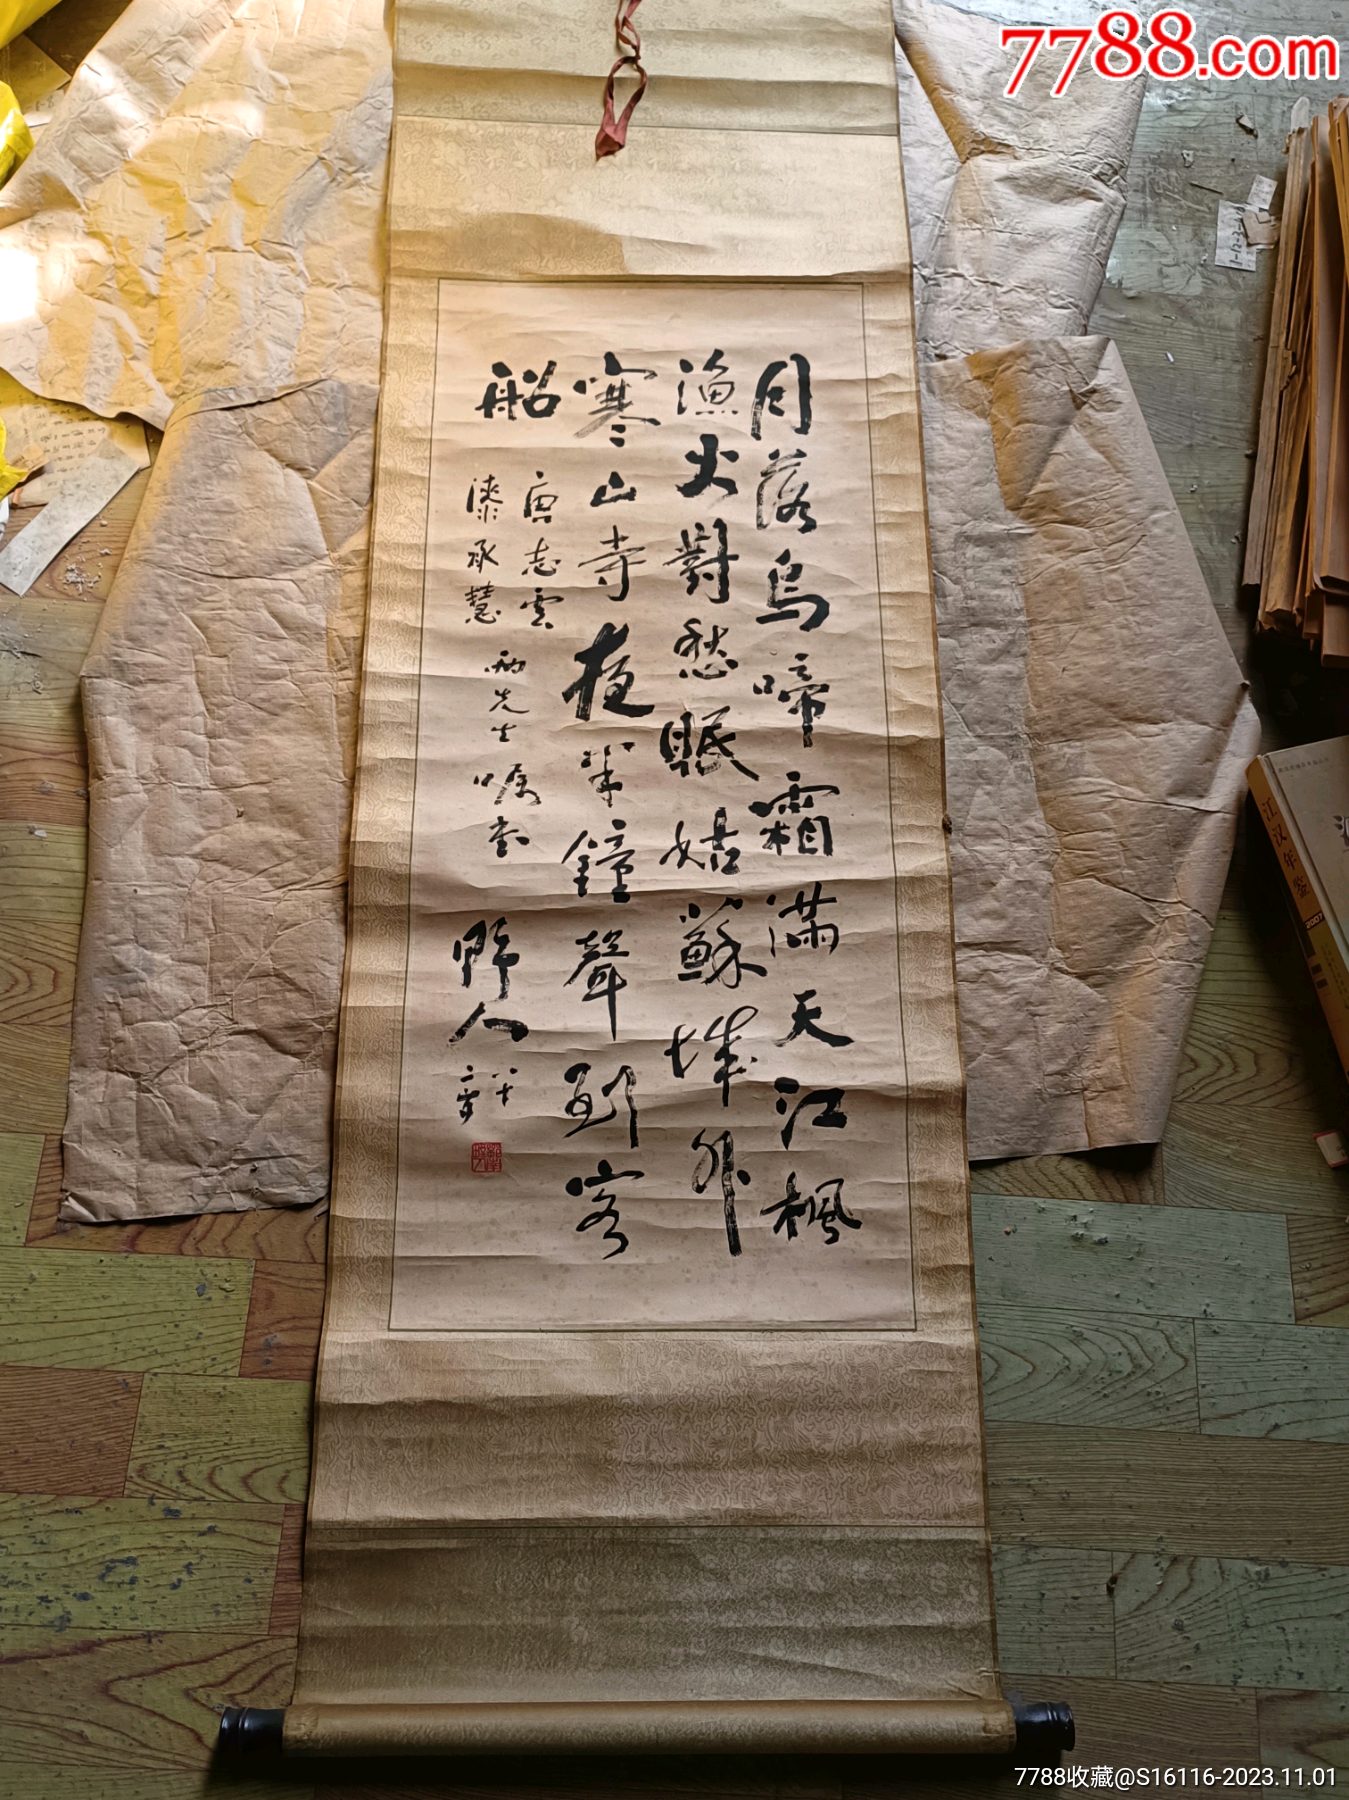 7788.com
月落烏啼霜滿天江楓
漁火對愁眠姑蘇城外
寒山寺夜半鐘聲到客
船
唐志雲
漆承慧
兩先生嘱书
野人
八十
二歲
江汉年鉴
2007
7788收藏@S16116-2023.11.01